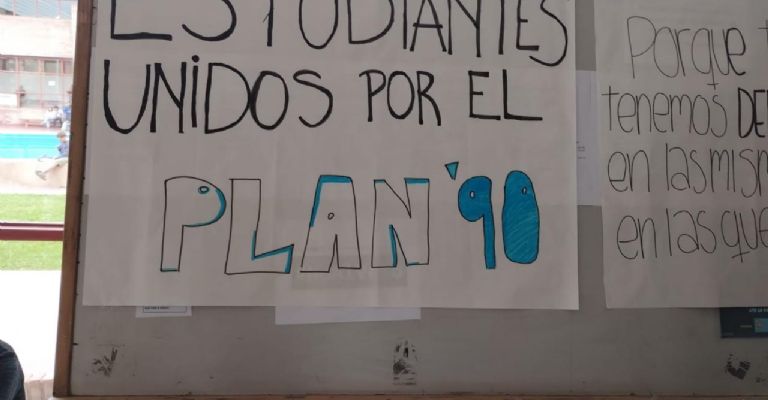 ESTUDIANTES
UNIDOS POR EL
PLAN '90
Porque
tenemos
en las
en las que